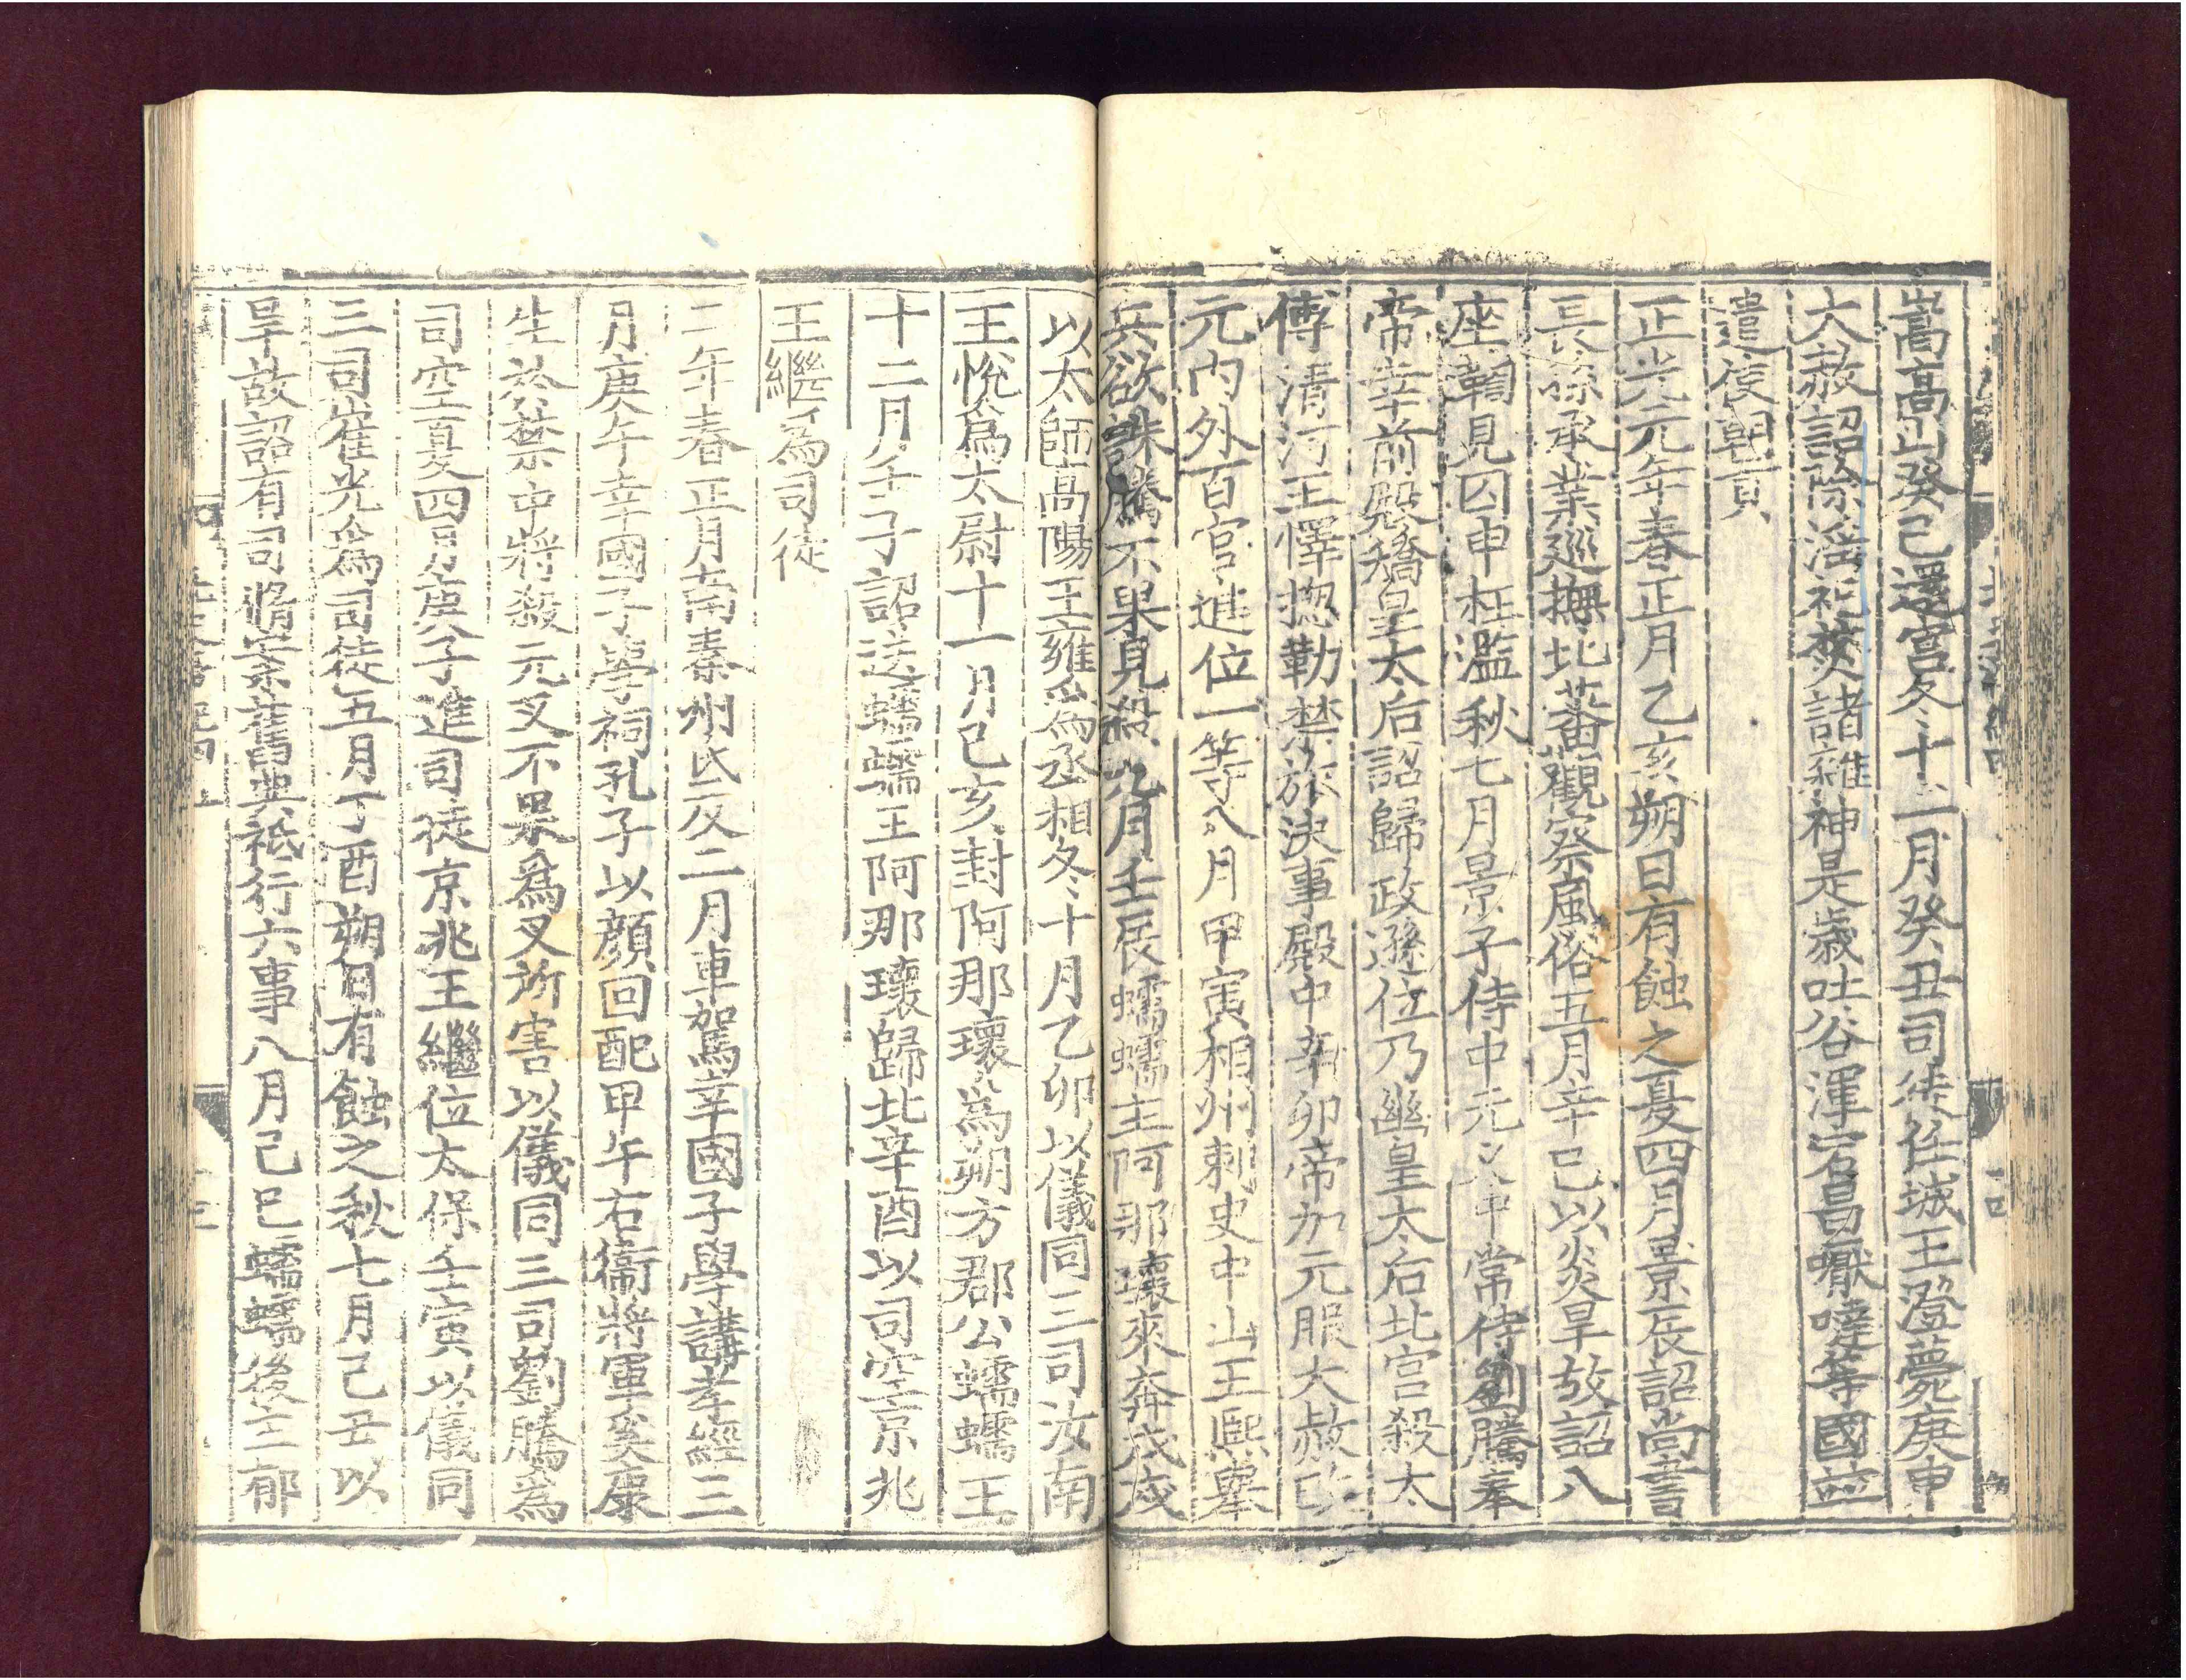 嵩高山癸巳還宮冬十二月癸丑司徒任城王澄薨庚申
大赦詔除淫祀焚諸雜神是歲吐谷渾宕昌嚈噠等國並
遣使朝貢
正光元年春正月乙亥朔日有蝕之夏四月景辰詔尚書
長孫承業巡撫北蕃觀察風俗五月辛巳以炎旱故詔八
座鞫見囚申枉濫秋七月景子侍中元乂中常侍劉騰奉
帝幸前殿矯皇太后詔歸政遜位乃幽皇太后北宮殺太
傅清河王懌揔勒禁旅決事殿中辛卯帝加元服大赦改
元內外百官進位一等八月甲寅相州刺史中山王熙舉
兵欲誅騰不果見殺九月壬辰蠕蠕主阿那瓌來奔戊戌
以太師高陽王雍爲丞相冬十月乙卯以儀同三司汝南
王悅爲太尉十一月己亥封阿那瓌爲朔方郡公蠕蠕王
十二月壬子詔送蠕蠕王阿那瓌歸北辛酉以司空京兆
王繼爲司徒
二年春正月南秦州氐反二月車駕幸國子學講孝經三
月庚午幸國子學祠孔子以顏回配甲午右衞將軍奚康
生於禁中將殺元叉不果爲叉所害以儀同三司劉騰爲
司空夏四月庚子進司徒京兆王繼位太保壬寅以儀同
三司崔光爲司徒五月丁酉朔日有蝕之秋七月己丑以
旱故詔有司脩案舊典祗行六事八月己巳蠕蠕後主郁